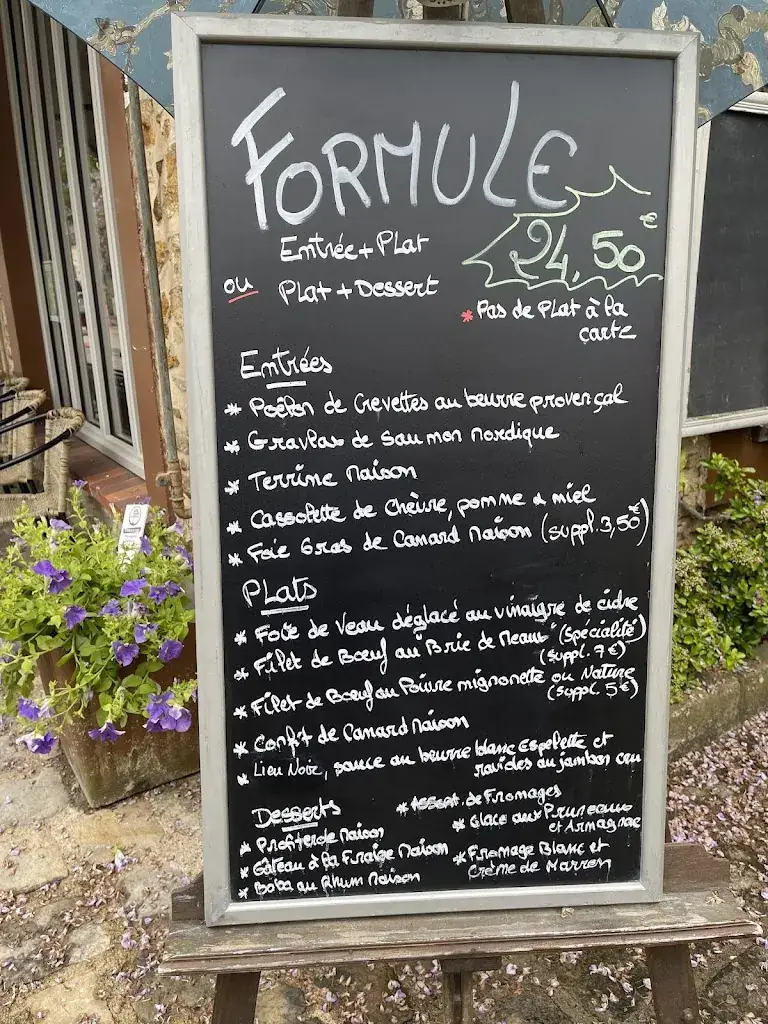 FORMULE
Entrée + Plat
ou Plat + Dessert
24,50€
* Pas de Plat à la
carte
Entrées
* Poêlon de Crevettes au beurre provençal
* Gravlax de Saumon nordique
* Terrine Maison
* Cassolette de Chèvre, pomme & miel
* Foie Gras de Canard Maison (suppl. 3,50€)
Plats
* Foie de Veau déglacé au vinaigre de cidre
* Filet de Bœuf au "Brie de Meaux" (Spécialité)
(suppl. 7€)
* Filet de Bœuf au Poivre mignonette ou Nature
(suppl. 5€)
* Confit de Canard Maison
* Lieu Noir, sauce au beurre blanc Espelette et
ravioles au jambon cru
Desserts
* Profiterole Maison
* Gâteau à la Fraise Maison
* Baba au Rhum Maison
* Assort. de Fromages
* Glace aux Pruneaux
et Armagnac
* Fromage Blanc et
Crème de Marron